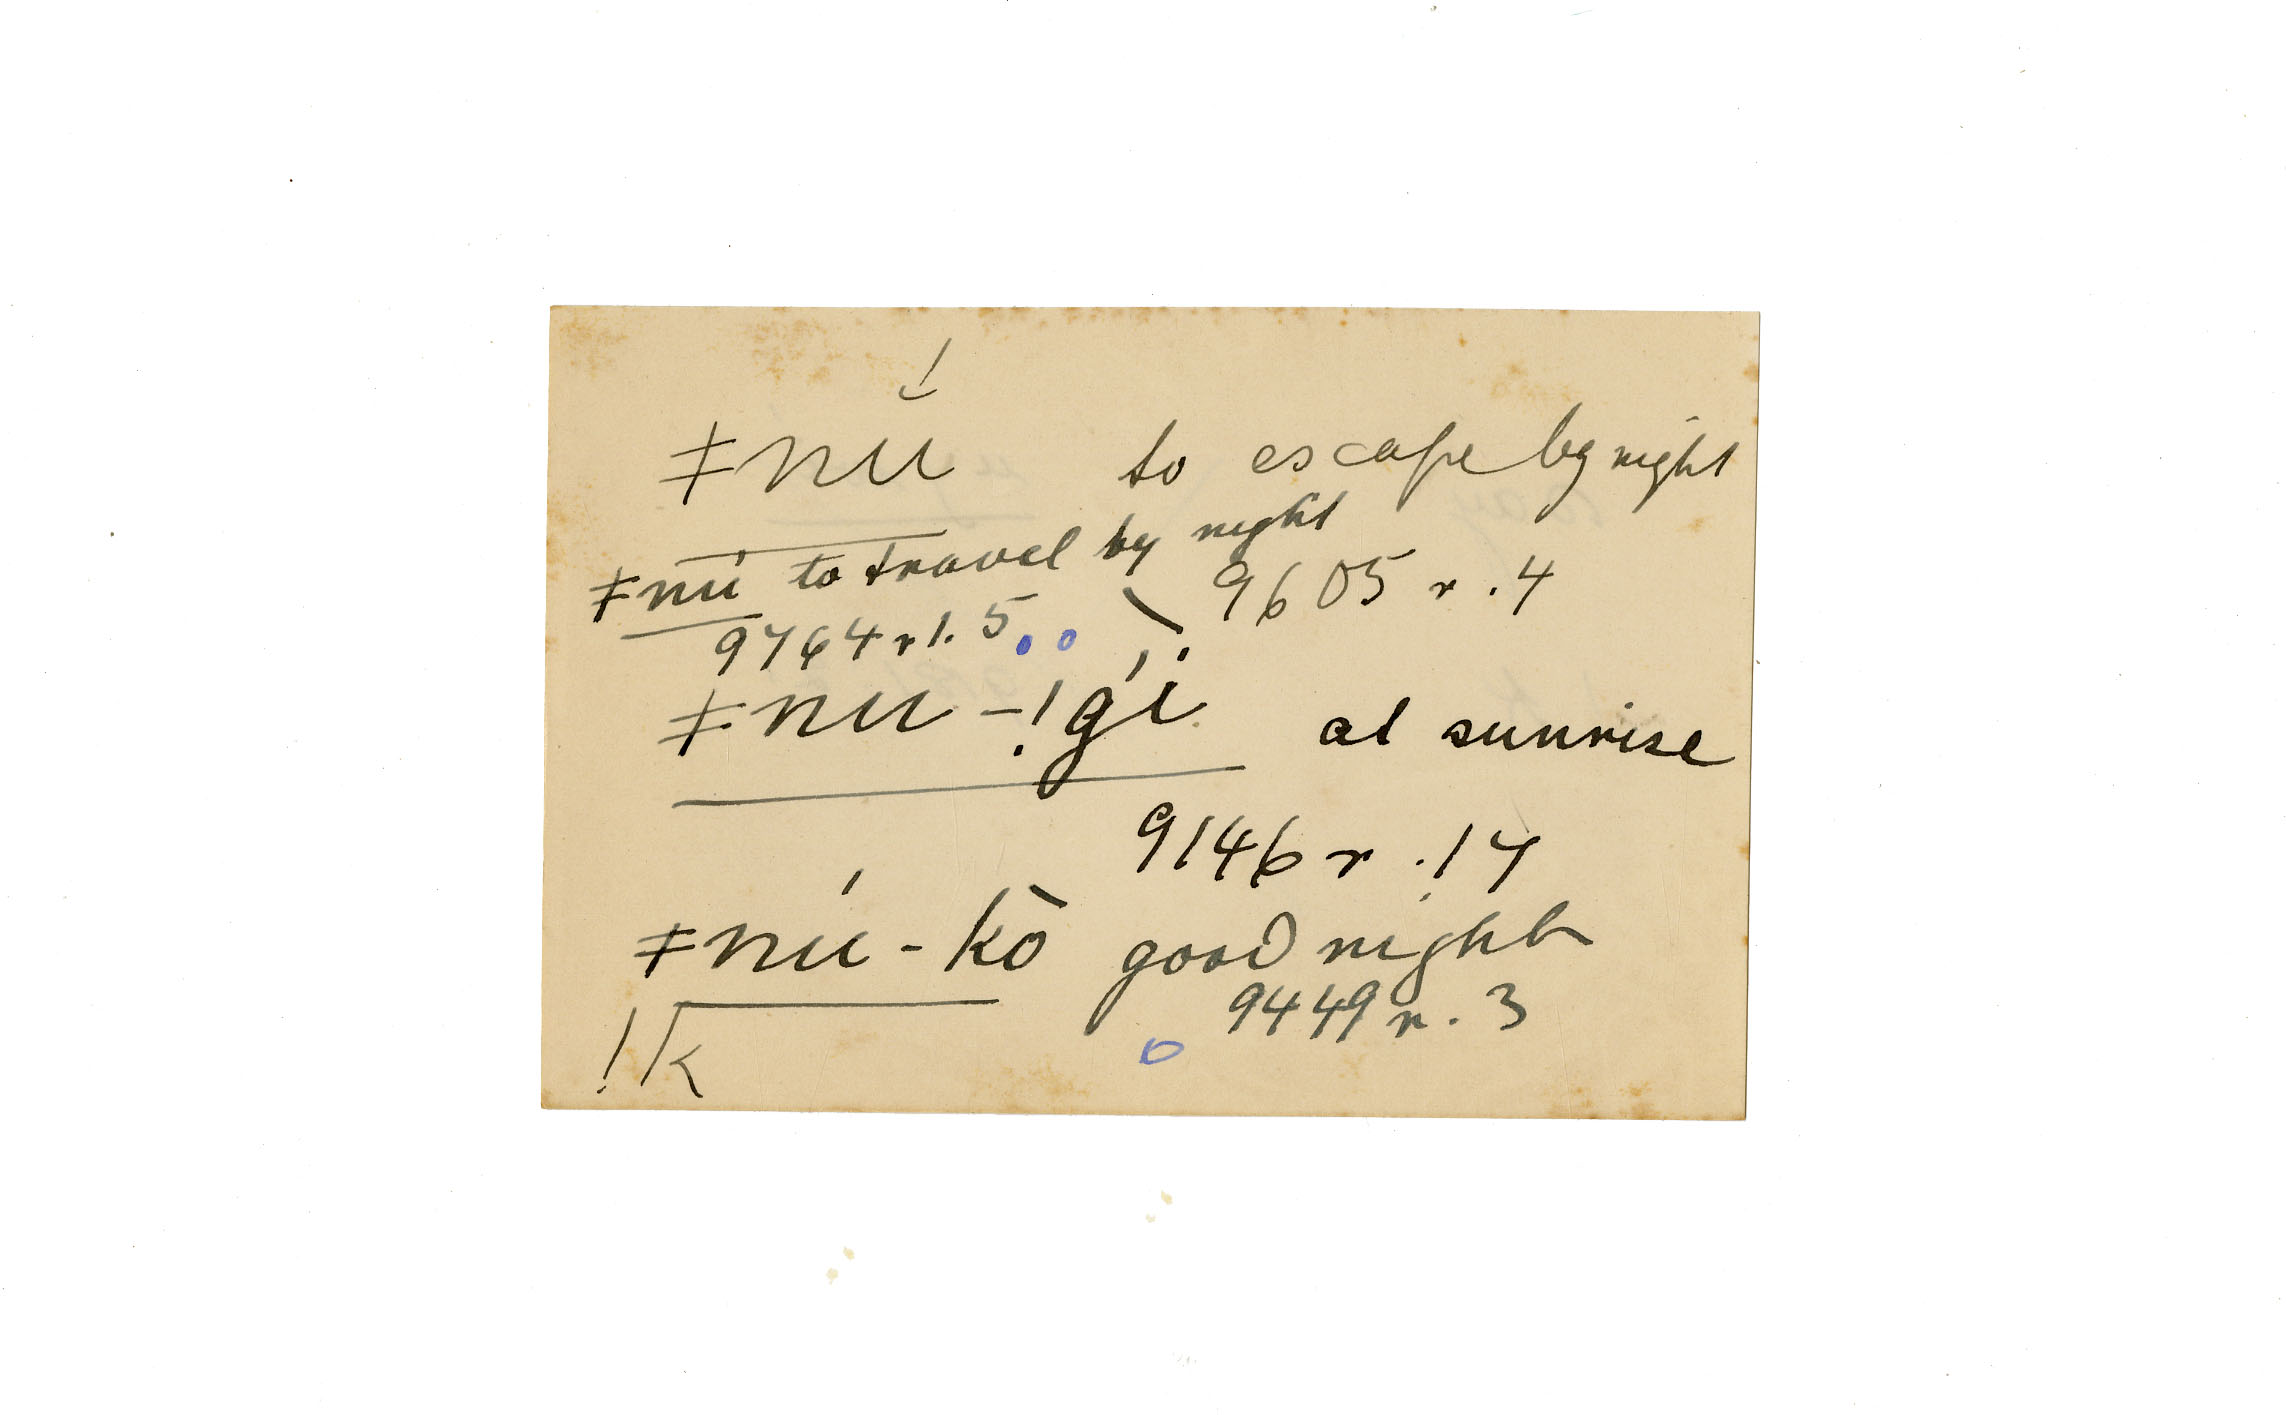 ǂnŭ́ to escape by night
ǂnú to travel by night
9605 r. 4
9764 r 1. 5
ǂnu-!gí̄ at sunrise
9146 r. 17
ǂnú-kō good night
9449 r. 3
!k